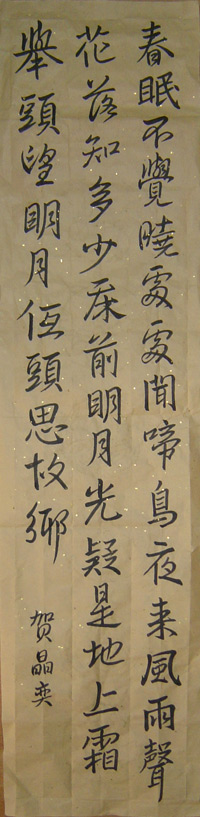 春眠不覺曉處處聞啼鳥夜来風雨聲
花落知多少床前明月光疑是地上霜
舉頭望明月低頭思故鄉
贺晶奕